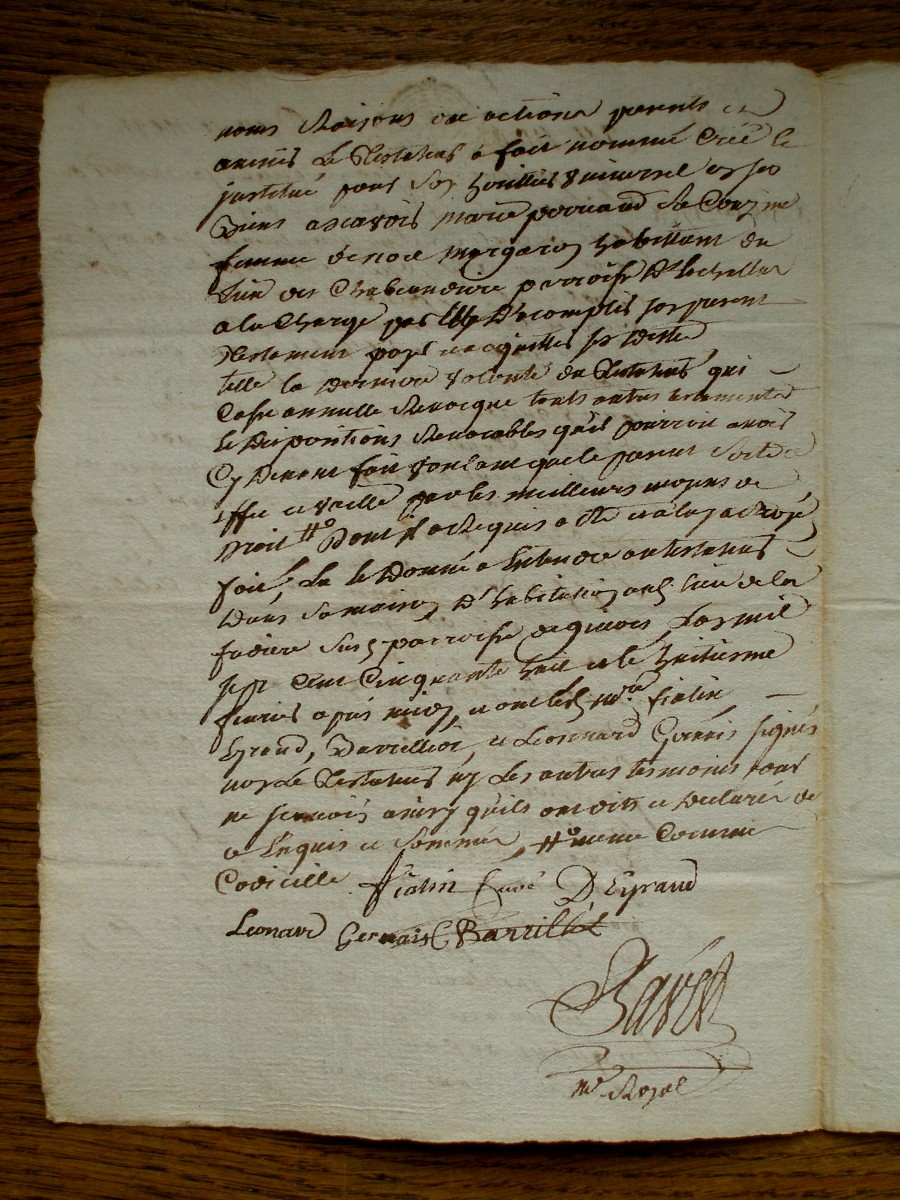 noms Raisons ou actions parents et
amis le Testateur a fait nommé créé et
institué pour son héritier universel et ses
biens ascavois marie perriaud sa Couzine
femme de noel margaron habittant du
lieu des Chabeaudiere parroisse D'
a la Charge par Elle D'acomplir son present
Testament payer et acquitter ses dettes
telle la derniere volonté du Testateur qui
Casse annulle Revocque touts autres testaments
et Dispositions Revocables qu'il pourroit avois
Cy devant fait voulant que le present sorte a
effet et vaille par les meilleurs moyens de
Droit Dont il a Requis acte
fait, Lu et Donné a Entendre au testateur
Dans sa maison D'habitation au lieu de la
parroisse de L'an mil
sept Cent Cinquante huit et le huitieme
fevrier aprés midy, et ont led. fialin
Eyraud, Barrilliot, et Leonnard Gervais signés
non le Testateur ny les autres tesmoins pour
ne sçavois ainsy qu'ils ont dit et Declarés de
ce Enquis et Sommés, meme Comme
Codicille fialin Curé D Eyraud
Leonard Gervais Barrillot
Ravel
Royal